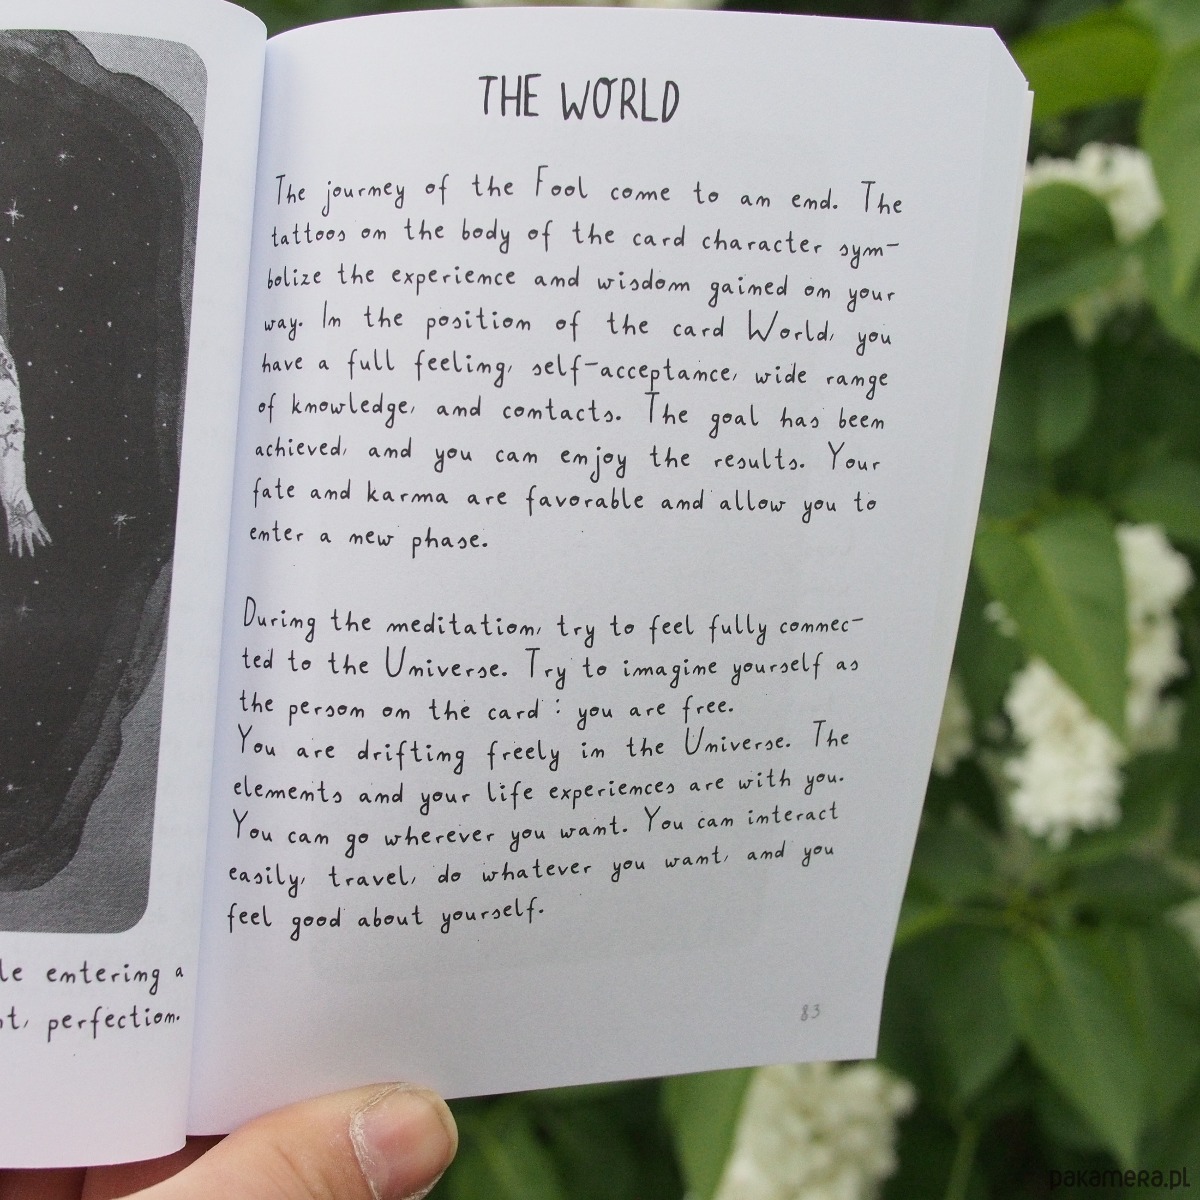 THE WORLD
The journey of the Fool come to an end. The
tattoos on the body of the card character sym-
bolize the experience and wisdom gained on your
way. In the position of the card World, you
have a full feeling, self-acceptance, wide range
of knowledge, and contacts. The goal has been
achieved, and you can enjoy the results. Your
fate and karma are favorable and allow you to
enter a new phase.
During the meditation, try to feel fully connec-
ted to the Universe. Try to imagine yourself as
the person on the card : you are free.
You are drifting freely in the Universe. The
elements and your life experiences are with you.
You can go wherever you want. You can interact
easily, travel, do whatever you want, and you
feel good about yourself.
83
entering a
perfection.
pakamera.pl